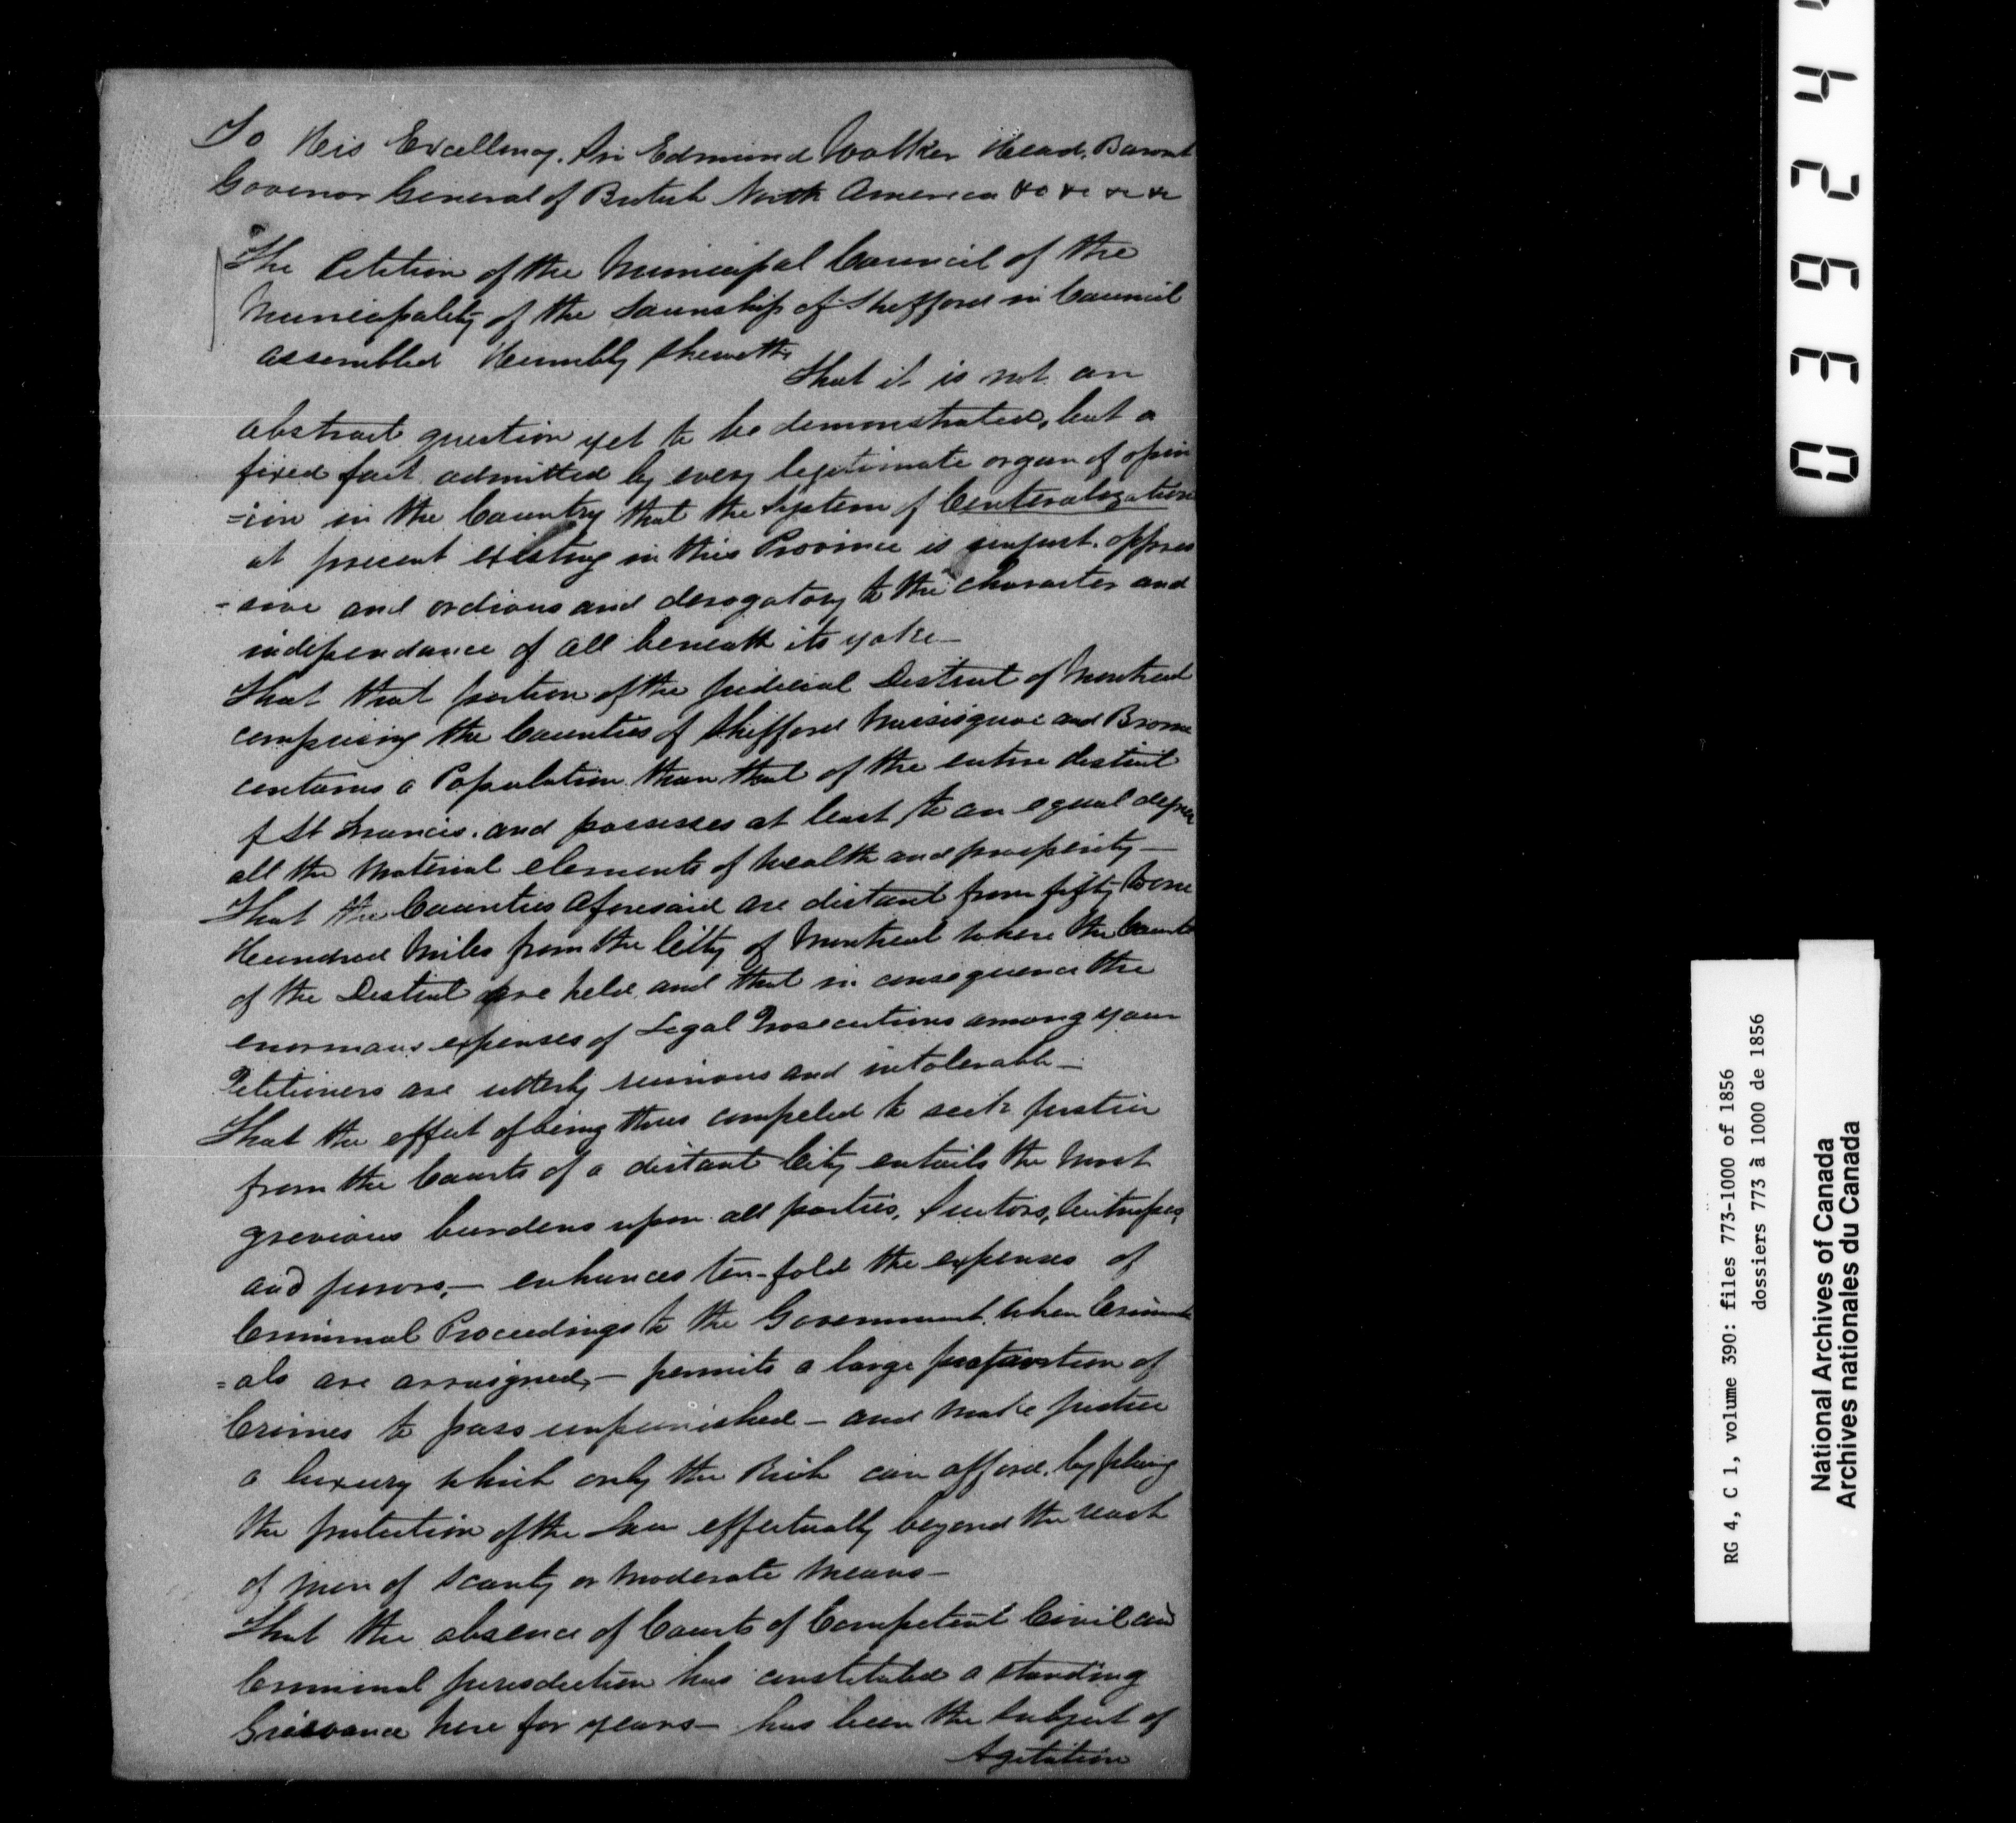 To His Excellency. Sir Edmund Walker Head, Baronet
Govenor General of British North America &c &c &c &c
The Petition of the Municipal Council of the
Municipality of the Township of Shefford in Council
assembled Humbly Sheweth
That it is not an
abstract question yet to be demonstrated, but a
fixed fact admitted by every legitimate organ of opin
=ion in the Country that the System of Centeralization
at present existing in this Province is unjust. oppres
-sive and ordious and derogatory to the character and
independance of all beneath its yoke—
That that portion of the judicial District of Montreal
comprising the Counties of Shefford Missisquoi and Brome
contains a Population than that of the entire district
of St Francis. and possesses at least, to an equal degree
all the Material elements of wealth and prosperity—
That the Counties aforesaid are distant from fifty to one
Hundred Miles from the City of Montreal where the Courts
of the District are held, and that in consequence the
enormous expenses of Legal Prosecutions among your
Petitioners are utterly ruinous and intolerable—
That the effect of being thus compeled to seek justice
from the Courts of a distant City entails the most
grevious burdens upon all parties, Suitors, Witnesses,
and jurors,— enhances ten-fold the expenses of
Criminal Proceedings to the Government, when Crimin
=als are arraigned,— permits a large proportion of
Crimes to pass unpunished— and make justice
a luxury which only the Rich can afford, by placing
the protection of the Law effectually beyond the reach
of men of scanty or moderate means—
That the absence of Courts of Competent Civil and
Criminal jurisdiction has constituted a standing
Grievance here for years— has been the subject of
Agitation
03924
RG 4, C 1, volume 390: files 773-1000 of 1856
dossiers 773 à 1000 de 1856
National Archives of Canada
Archives nationales du Canada